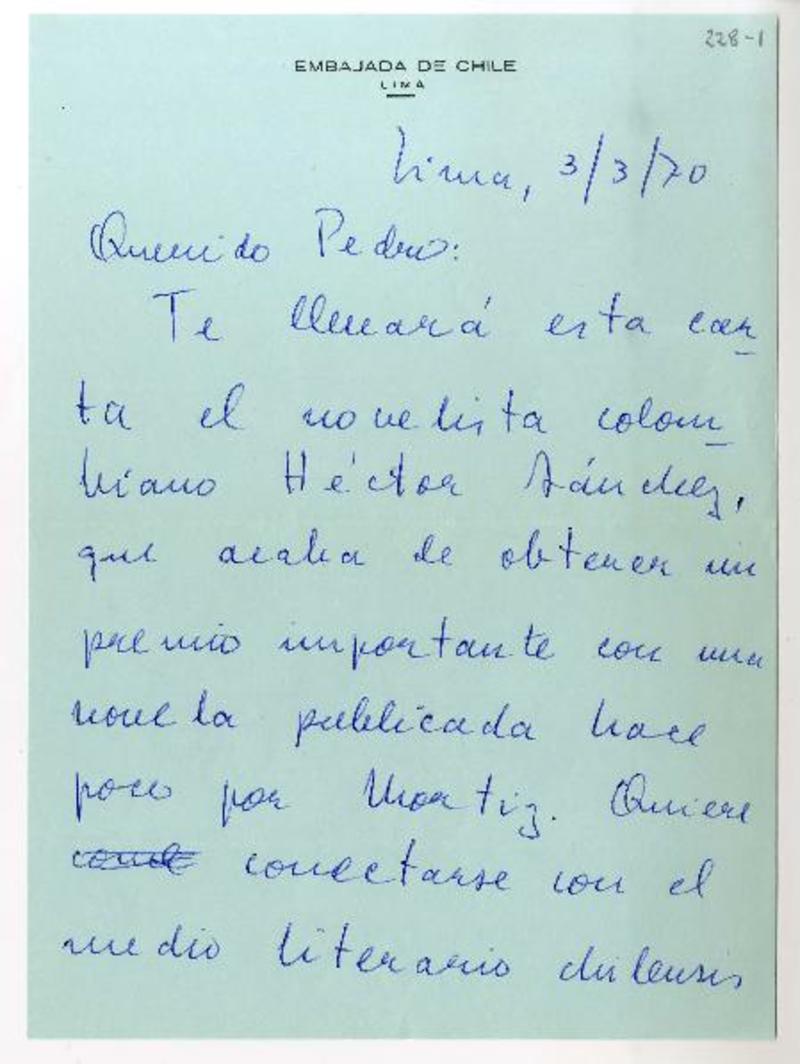 228-1
EMBAJADA DE CHILE
LIMA
Lima, 3/3/70
Querido Pedro:
Te llevará esta car
ta el novelista colom
biano Héctor Sánchez,
que acaba de obtener un
premio importante con una
novela publicada hace
poco por Mortiz. Quiere
conectarse con el
medio literario chilensis